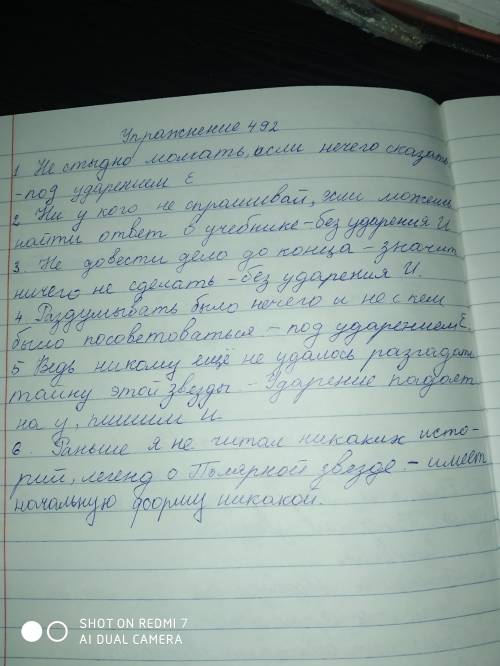 Упражнение 492
1 Не стыдно молчать, если нечего сказать
- под ударением Е
2. Ни у кого не спрашивай, если можешь
найти ответ в учебнике - без ударения И
3. Не довести дело до конца - значит
ничего не сделать - без ударения И.
4. Раздумывать было нечего и не с кем
было посоветоваться - под ударением Е.
5 Ведь никому ещё не удалось разгадать
тайну этой звезды. - Ударение падает
на у, пишем И
6. Раньше я не читал никаких исто-
рий, легенд о Полярной звезде - имеет
начальную форму никакой.
SHOT ON REDMI 7
AI DUAL CAMERA